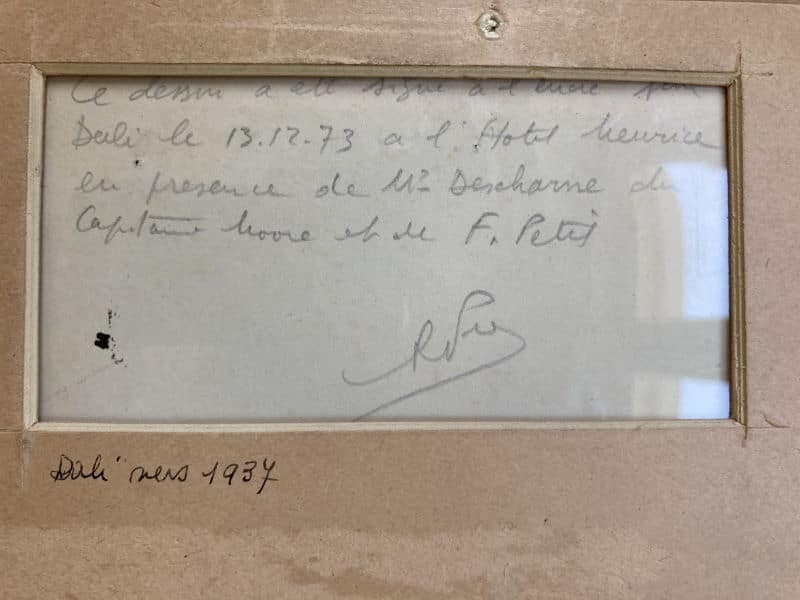 Ce dessin a été signé à l'encre par
Dali le 13.12.73 a l'Hotel Meurice
en presence de Mr Descharne du
Capitaine Moore et de F. Petit
Dali vers 1937